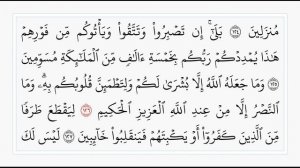 مُنزَلِينَ ١٢٤ بَلَىٰٓ إِن تَصْبِرُوا۟ وَتَتَّقُوا۟ وَيَأْتُوكُم مِّن فَوْرِهِمْ
هَٰذَا يُمْدِدْكُمْ رَبُّكُم بِخَمْسَةِ ءَالَٰفٍ مِّنَ ٱلْمَلَٰٓئِكَةِ مُسَوِّمِينَ
١٢٥ وَمَا جَعَلَهُ ٱللَّهُ إِلَّا بُشْرَىٰ لَكُمْ وَلِتَطْمَئِنَّ قُلُوبُكُم بِهِۦ ۗ وَمَا
ٱلنَّصْرُ إِلَّا مِنْ عِندِ ٱللَّهِ ٱلْعَزِيزِ ٱلْحَكِيمِ ١٢٦ لِيَقْطَعَ طَرَفًا
مِّنَ ٱلَّذِينَ كَفَرُوٓا۟ أَوْ يَكْبِتَهُمْ فَيَنقَلِبُوا۟ خَآئِبِينَ ١٢٧ لَيْسَ لَكَ